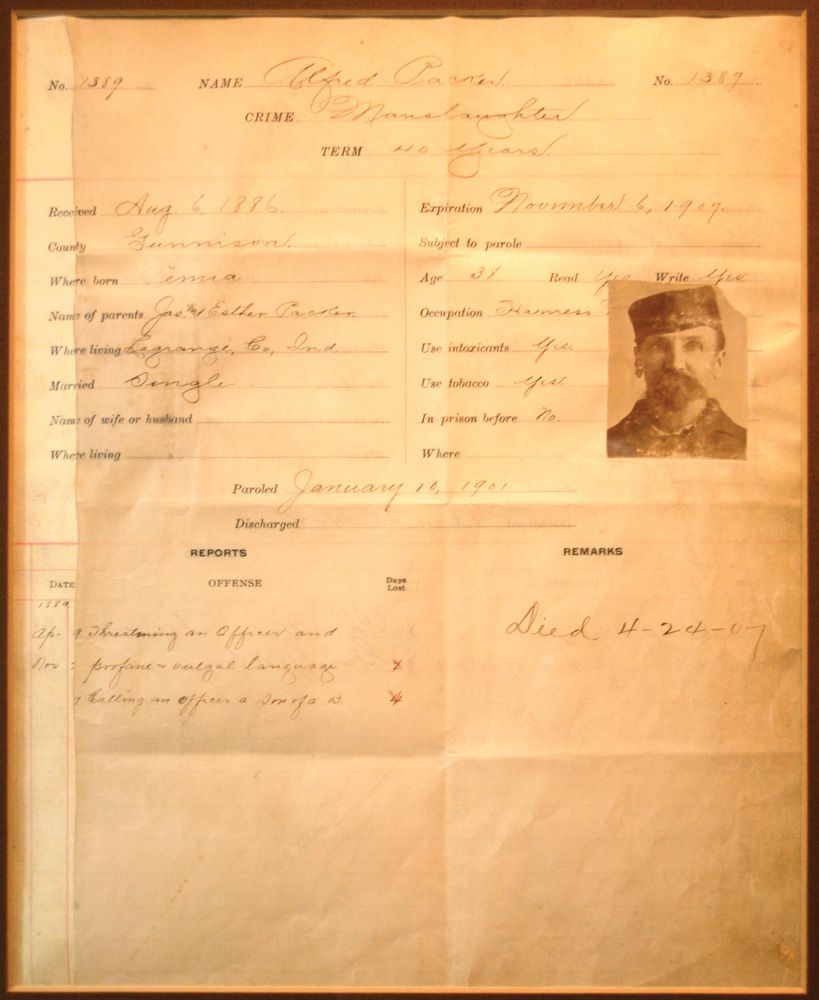 No. 1389 NAME Alfred Packer No. 1389
CRIME Manslaughter
TERM 40 Years.
Received Aug. 6, 1886. Expiration November 6, 1907.
County Gunnison. Subject to parole
Where born Age 38 Read Yes Write Yes
Name of parents Jas. & Esther Packer. Occupation Harness
Where living Lagrange, Co, Ind. Use intoxicants Yes.
Married Single Use tobacco Yes.
Name of wife or husband In prison before No.
Where living Where
Paroled January 10, 1901
Discharged
REPORTS REMARKS
DATE OFFENSE Days Lost
1889
Apr 9 Threatning an Officer and Died 4-24-07
Nov profane & vulgal language
Calling an officer a son of a B.